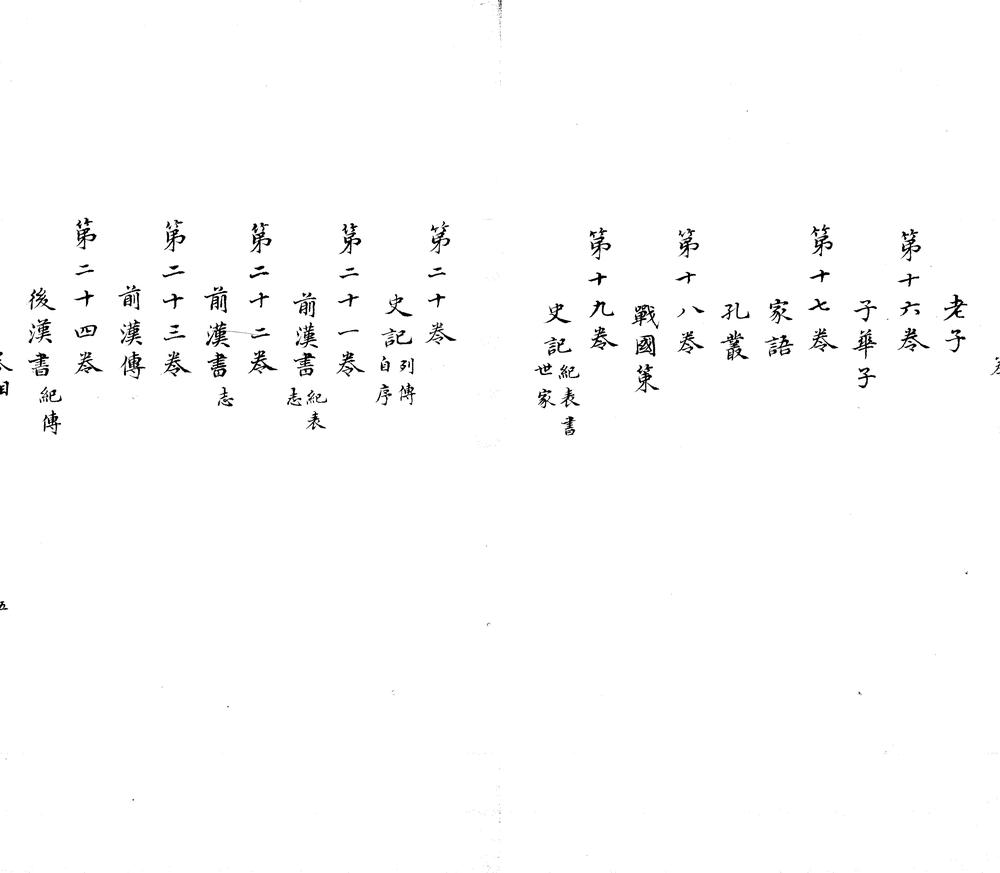 老子
第十六卷
子華子
第十七卷
家語
孔叢
第十八卷
戰國策
第十九卷
史記紀表書世家
第二十卷
史記列傳自序
第二十一卷
前漢書紀表志
第二十二卷
前漢書志
第二十三卷
前漢傳
第二十四卷
後漢書紀傳
五